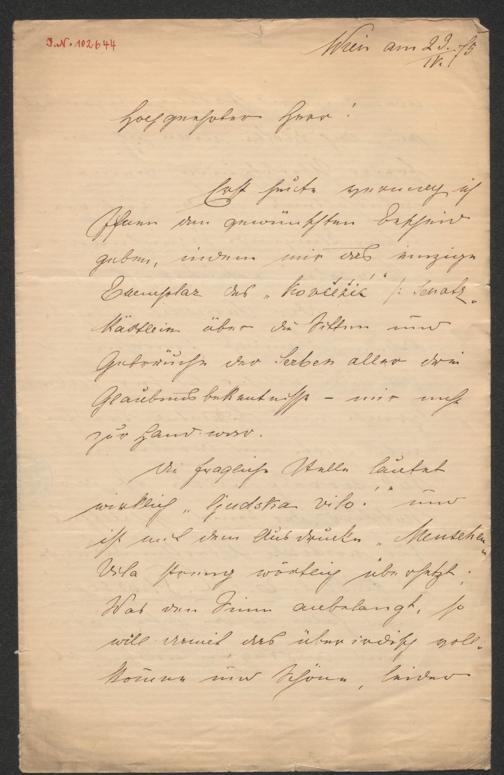 I.N. 102644
Wien am 23./IV. 75
Hochgeehrter Herr!
Erst heute vermag ich
Ihnen den gewünschten Bescheid
geben, indem mir das einzige
Exemplar des „Kovčežić" /: Schatz-
Kästlein über die Sitten und
Gebräuche der Serben aller drei
Glaubensbekenntnisse – mir nicht
zur Hand war.
Die fragliche Stelle lautet
wirklich „ljudska vilo!" und
ist mit dem Ausdrucke „Menschen
Vila streng wörtlich übersetzt.
Was den Sinn anbelangt, so
will damit das überirdisch voll-
kom̅ene und Schöne, leider